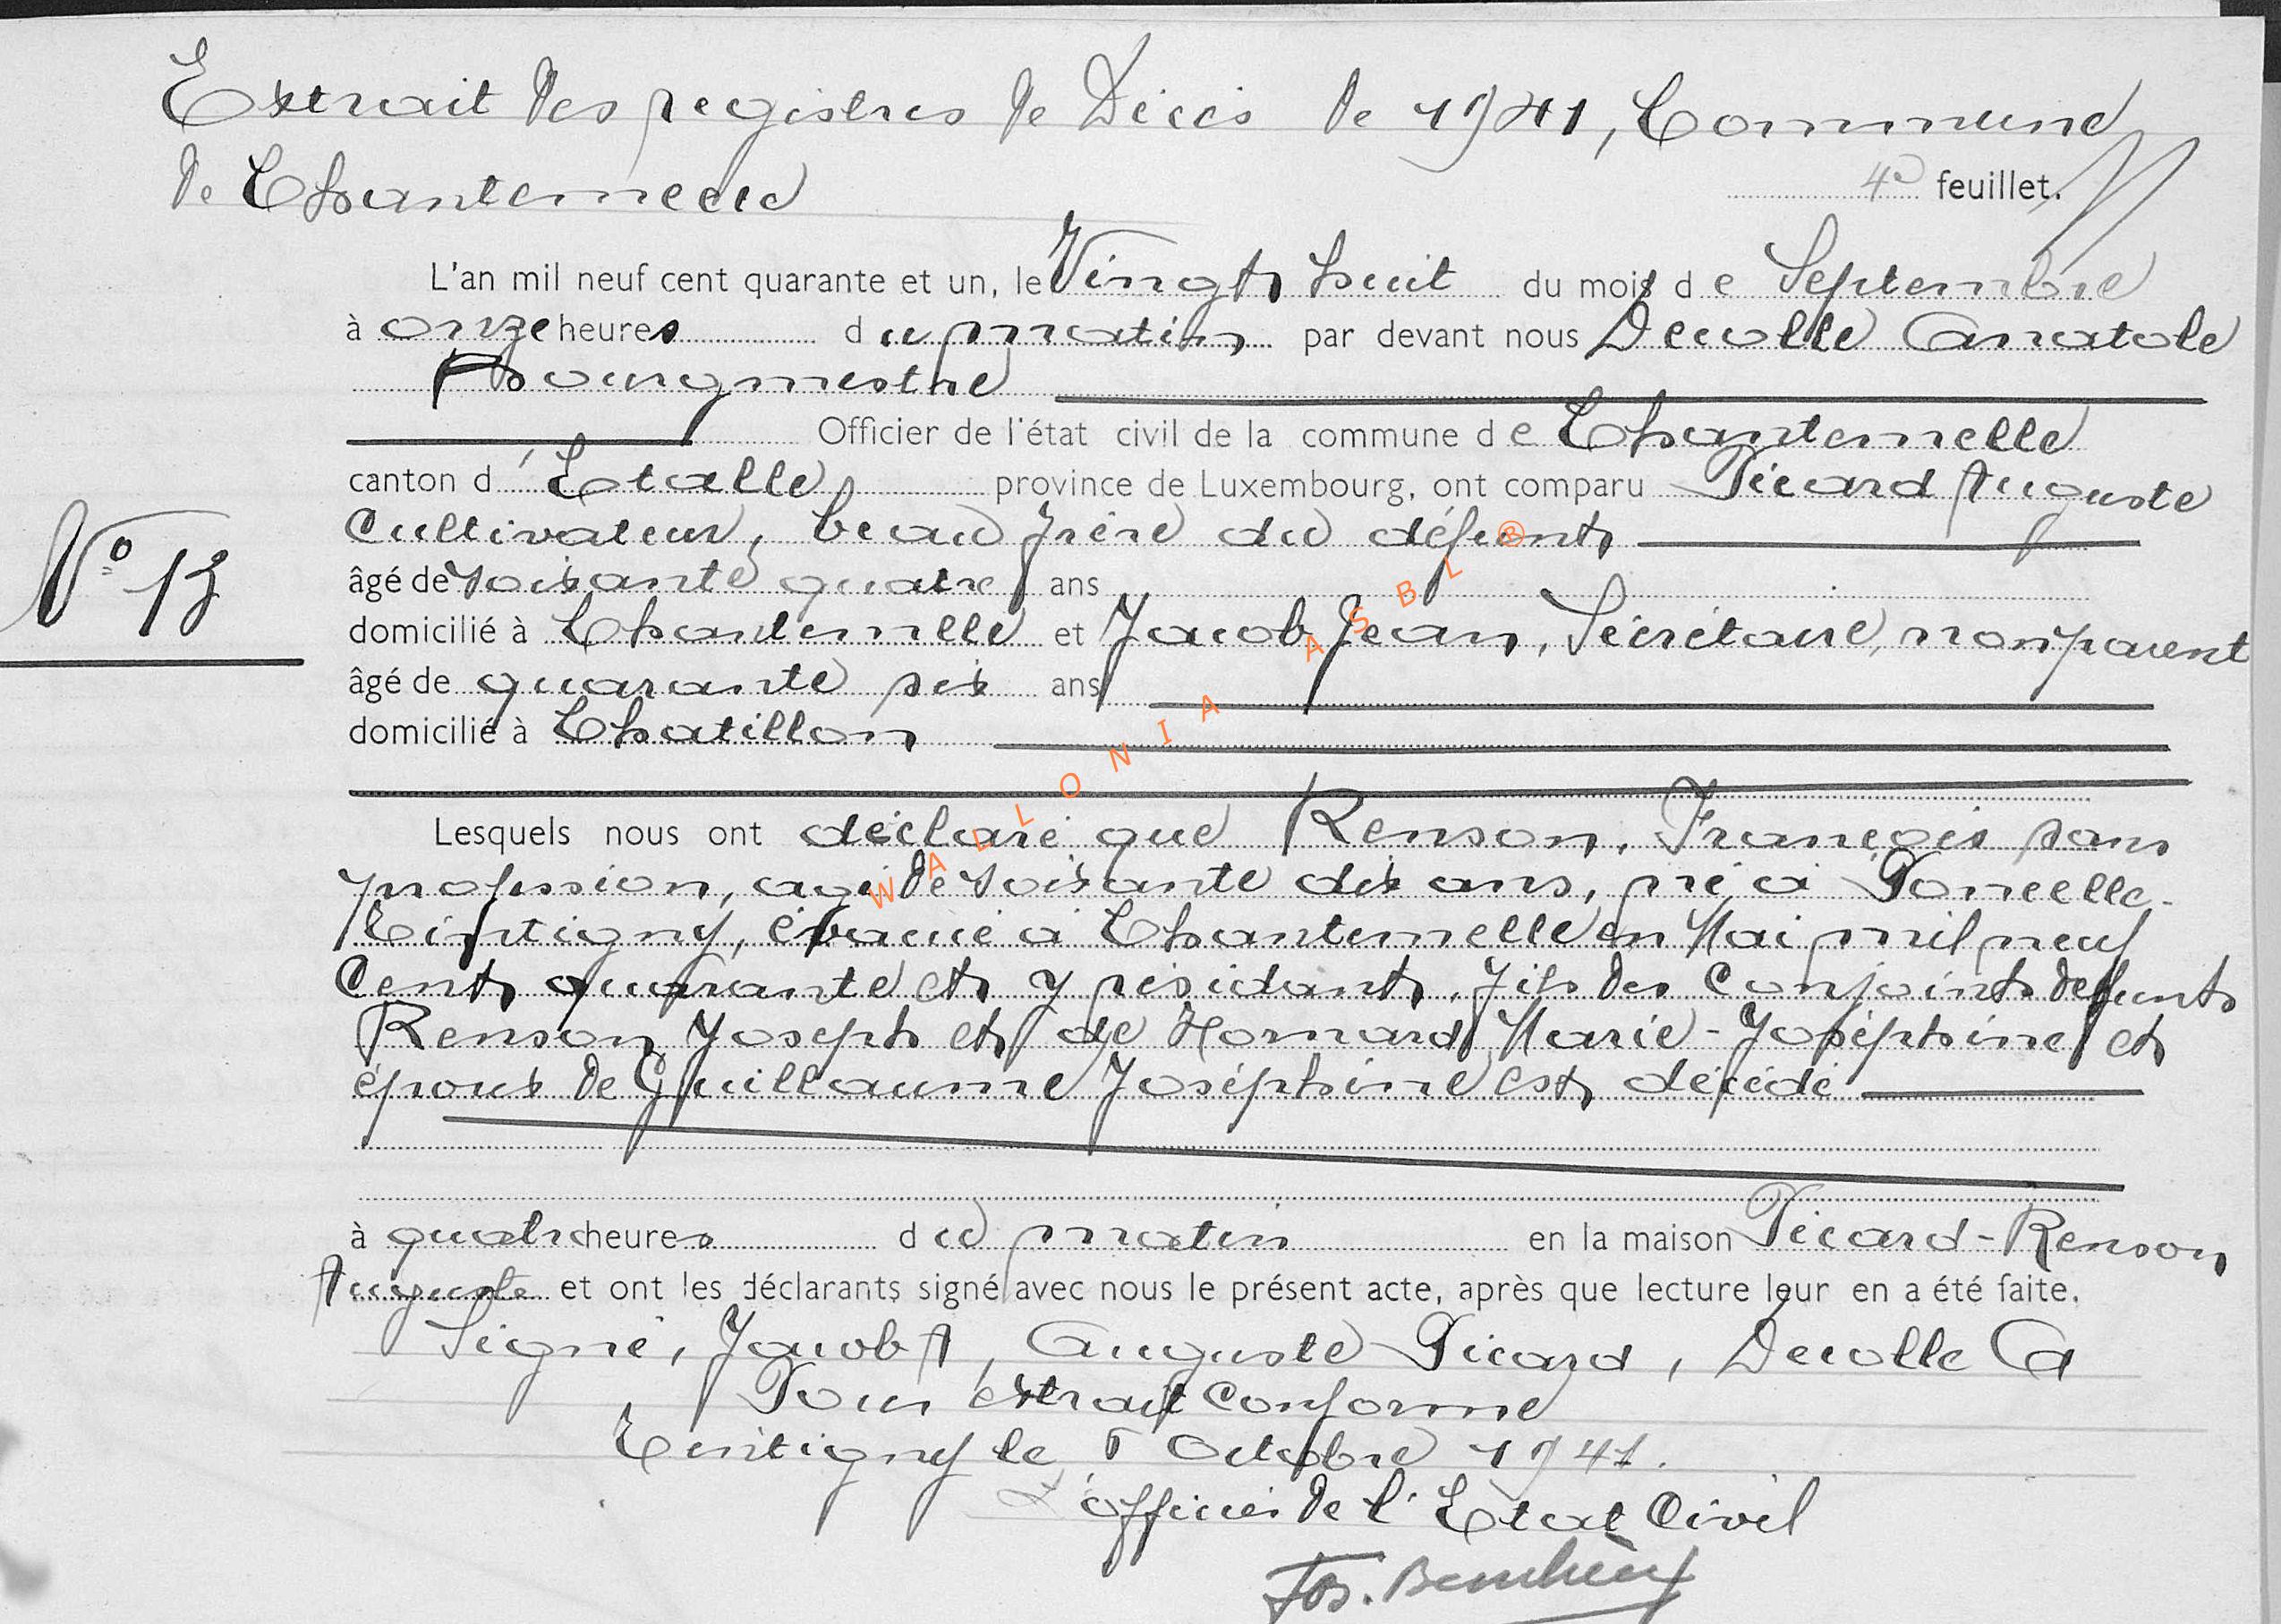 Extrait des registres de Décès de 1941, Commune
de Chantemelle
4e feuillet.
L'an mil neuf cent quarante et un, le Vingt huit du mois de Septembre
à onze heures du matin par devant nous Decolle Anatole
Bourgmestre
Officier de l'état civil de la commune de Chantemelle
canton d'Etalle province de Luxembourg, ont comparu Picard Auguste
Cultivateur, beau frère du défunt
âgé de soixante quatre ans
N° 13
domicilié à Chantemelle et Jacob Jean, Secrétaire, non parent
âgé de quarante six ans
domicilié à Chatillon
Lesquels nous ont déclaré que Renson, François sans
profession, agé de soixante dix ans, né à Poncelle-
Tintigny, évacué à Chantemelle en Mai mil neuf
Cent quarante et y résidant, fils des Conjoints défunts
Renson Joseph et de Hornard Marie-Joséphine et
époux de Guillaume Joséphine est décédé
à quatre heures du matin en la maison Picard-Renson
Auguste et ont les déclarants signé avec nous le présent acte, après que lecture leur en a été faite.
Signé, Jacob, Auguste Picard, Decolle A
Pour extrait conforme
Tintigny le Octobre 1941.
L'officier de l'Etat Civil
Jos.
WALLONIA ASBL ®